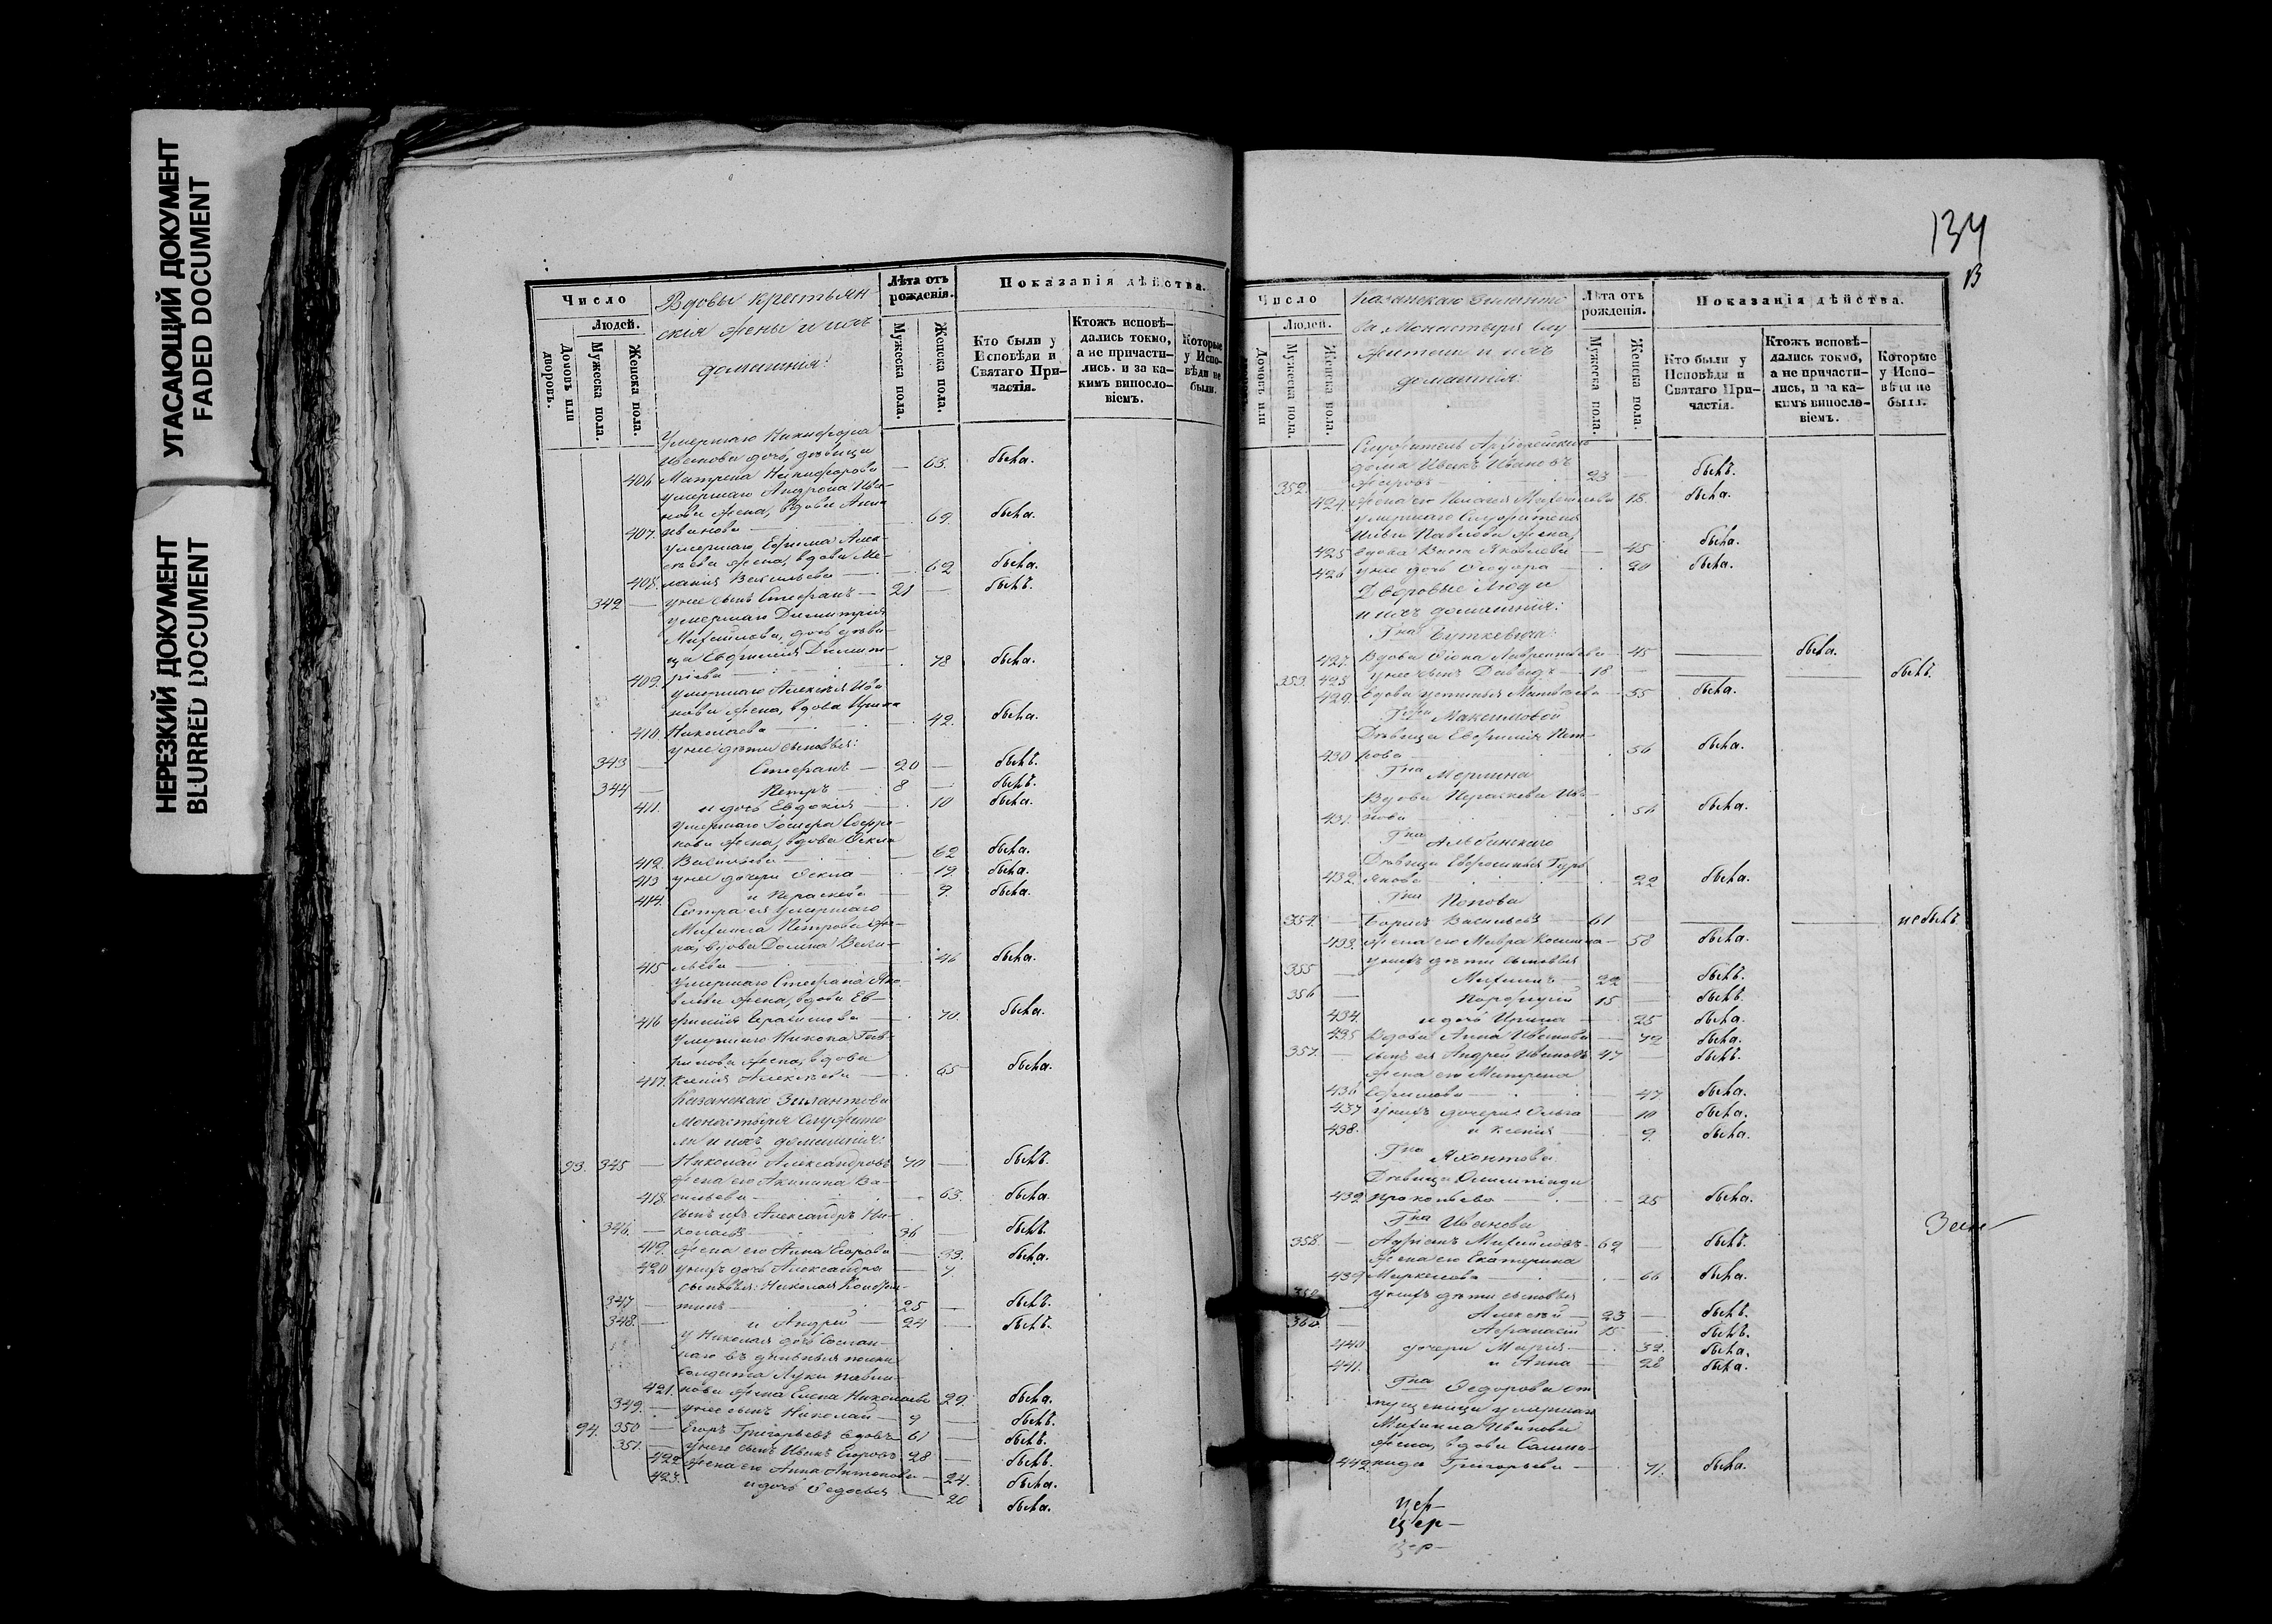 УГАСАЮЩИЙ ДОКУМЕНТ
FADED DOCUMENT
НЕРЕЗКИЙ ДОКУМЕНТ
BLURRED DOCUMENT
Число
Людей.
Домовъ или дворовъ.
Мужеска пола.
Женска пола.
Вдовы крестьян
ския жены и ихъ
домашнія:
Лѣта отъ рожденія.
Мужеска пола.
Женска пола.
Показанія дѣйства.
Кто были у Исповѣди и Святаго При-частія.
Ктожъ исповѣ-дались токмо, а не причасти-лись. и за ка-кимъ виносло-віемъ.
Которые у Испо-вѣди не были.
Умершаго Никифора
Иванова дочь, дѣвица
406. Матрена Никифорова — 63. была.
умершаго Андрона Ива-
нова жена, вдова Анна
407. Иванова — 69. была.
умершаго Ефима Алек-
сѣева жена, вдова Ме-
408. лания Васильева — 62 была.
342 — у нее сынъ Стефанъ — 21 — былъ.
умершаго Димитрия
Михайлова, дочь дѣви-
ца Евфимия Димит-
409. риева — 78 была.
умершаго Алексѣя Ива
нова жена, вдова Ирина
410. Николаева — 42. была.
у нее дѣти сыновья:
343 — Стефанъ — 20 — былъ.
344 — Петръ — 8 — былъ.
411. и дочь Евдокия — 10 была.
нова жена, вдова Фекла
412. Васильева — 62 была.
413 у нее дочери Фекла — 19. была.
414. и Параскева — 9. была.
Сестра ея умершаго
Михаила Петрова же-
на, вдова Домна Васи-
415 льева — 46 была.
Умершаго Стефана Яко
влева жена, вдова Ев-
416 фимия Герасимова — 70. была.
Умершаго Никона Гав-
рилова жена, вдова
417. Ксения Алексѣева — 65 была.
Казанскаго Зилантова
монастыря служите
ли и ихъ домашния:
93. 345 — Николай Александровъ 70 — былъ.
жена его Акилина Ва-
418. сильева — 63. была.
сынъ ихъ Александръ Ни-
346. — колаевъ — 36 — былъ.
419. жена его Анна Егорова — 33. была.
420 у нихъ дочь Александра — 7.
347 — 25 — былъ.
348. — и Андрей — 24 — былъ.
у Николая дочь
солдата Луки
421. нова жена Елена Николаева 29. была.
349. — у нее сынъ Николай — 9 — былъ.
94. 350 — Егоръ Григорьевъ вдовъ 61 — былъ.
351. — у него сынъ Иванъ Егоровъ 28 — былъ.
422 жена его Анна Антонова — 24. была.
423. и дочь Федосья — 20 была.
134
В
Число
Людей.
Домовъ или
Мужеска пола.
Женска пола.
Казанскаго Зиланто
ва Монастыря Слу
жители и ихъ
домашнія:
Лѣта отъ рожденія.
Мужеска пола.
Женска пола.
Показанія дѣйства.
Кто были у Исповѣди и Святаго При-частія.
Ктожъ исповѣ-дались токмо, а не причасти-лись, и за ка-кимъ виносло-віемъ.
Которые у Испо-вѣди не были.
Служитель Архіерейскаго
дома Иванъ Ивановъ
352. — 23 — былъ.
424. жена его Пелагея Михайлова 18. была.
умершаго Служителя
Ильи Павлова жена,
425 вдова Васса Яковлева — 45 была.
426 у нее дочь Феодора — 20 была.
Дворовые люди
и ихъ домашнія:
Гна Буткевича:
427. Вдова Фекла Лаврентьева — 45 — была.
353. 428 у нее сынъ Давыдъ — 18 — былъ.
429. вдова Устинья Матвѣева — 55 была.
Гжи Максимовой
Дѣвица Евфимия Пет-
430 рова — 56 была.
Гна Мерлина
Вдова Параскева Ива-
431. нова — 56 была.
Гна Альбинскаго
432. 22 была.
Гна Попова
354. — Борисъ Васильевъ — 61 — не былъ
433. жена его Мавра Косьмина — 58 была.
у нихъ дѣти сыновья
355 — Михаилъ — 22 — былъ.
356 — Порфирий — 15 — былъ.
434. и дочь Ирина — 25 была.
435 Вдова Анна Иванова — 72 была.
357. — сынъ ея Андрей Ивановъ 47 — былъ.
жена его Матрена
436 Ефимова — 47 была.
437 у нихъ дочери: Ольга — 10 была.
438. и Ксения — 9. была.
Гна Яхонтова
Дѣвица Олимпиада
439. Прокопьева — 25 была.
Гна Иванова
358. — Адрианъ Михайловъ — 62 — былъ.
жена его Екатерина
439 Маркелова — 66 была.
у нихъ дѣти сыновья
359 — Алексѣй — 23 — былъ.
360. — Афанасий 15 — былъ.
440 дочери Мария — 32. была.
441. и Анна — 28 была.
Гна Федорова от
пущеница умершаго
Михаила Иванова
жена, вдова Салма-
442. нида Григорьева — 71. была.
цер-
цер-
цер-